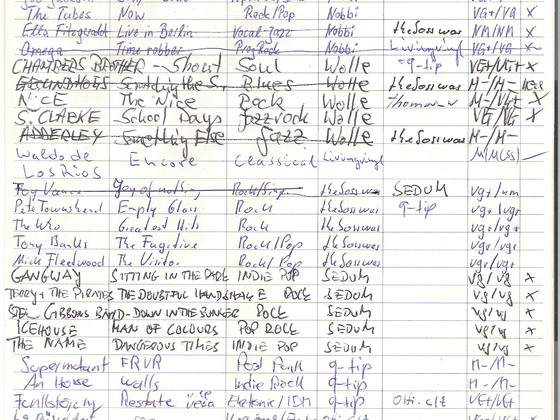 The Tubes Now Rock/Pop Nobbi VG+/VG X
Ella Fitzgerald Live in Berlin Vocal-Jazz Nobbi theSoswas NM/NM X
Omega Time robber ProgRock Nobbi Livingvinyl VG+/VG
CHAMBERS BROTHER - Shout Soul Wolle q-tip VG+/VG+ X
Blues Wolle theSoswas M-/M-
NICE The Nice Rock Wolle Thomas M-/VG+ X
S. CLARKE School Days Jazzrock Wolle VG+/VG X
ADDERLEY Something Else Jazz Wolle theSoswas M-/M-
Waldo de Encore Classical Livingvinyl M/M(SS)
Los Rios
Foy Vance Joy of nothing Rock/Singer theSoswas SEDUM vg+/nm
Pete Townshend Empty Glass Rock theSoswas q-tip vg+/vg+
The Who Greatest Hits Rock theSoswas vg+/vg+
Tony Banks The Fugitive Rock/Pop theSoswas vg+/vg+
Mick Fleetwood The Visitor Rock/Pop theSoswas vg+/vg+
GANGWAY SITTING IN THE PARK INDIE POP SEDUM vg/vg X
TERRY & THE PIRATES THE DOUBTFUL HANDSHAKE ROCK SEDUM vg/vg X
STE. GIBBONS BAND - DOWN IN THE BUNKER ROCK SEDUM vg/vg X
ICEHOUSE MAN OF COLOURS POP ROCK SEDUM vg/vg X
THE NAME DANGEROUS TIMES INDIE POP SEDUM vg/vg X
Supermutant FRVR Post Punk q-tip M-/M-
An House walls Indie Rock q-tip M-/M-
Restate Eletronic/IDM q-tip Otti.clt VG+/VG+